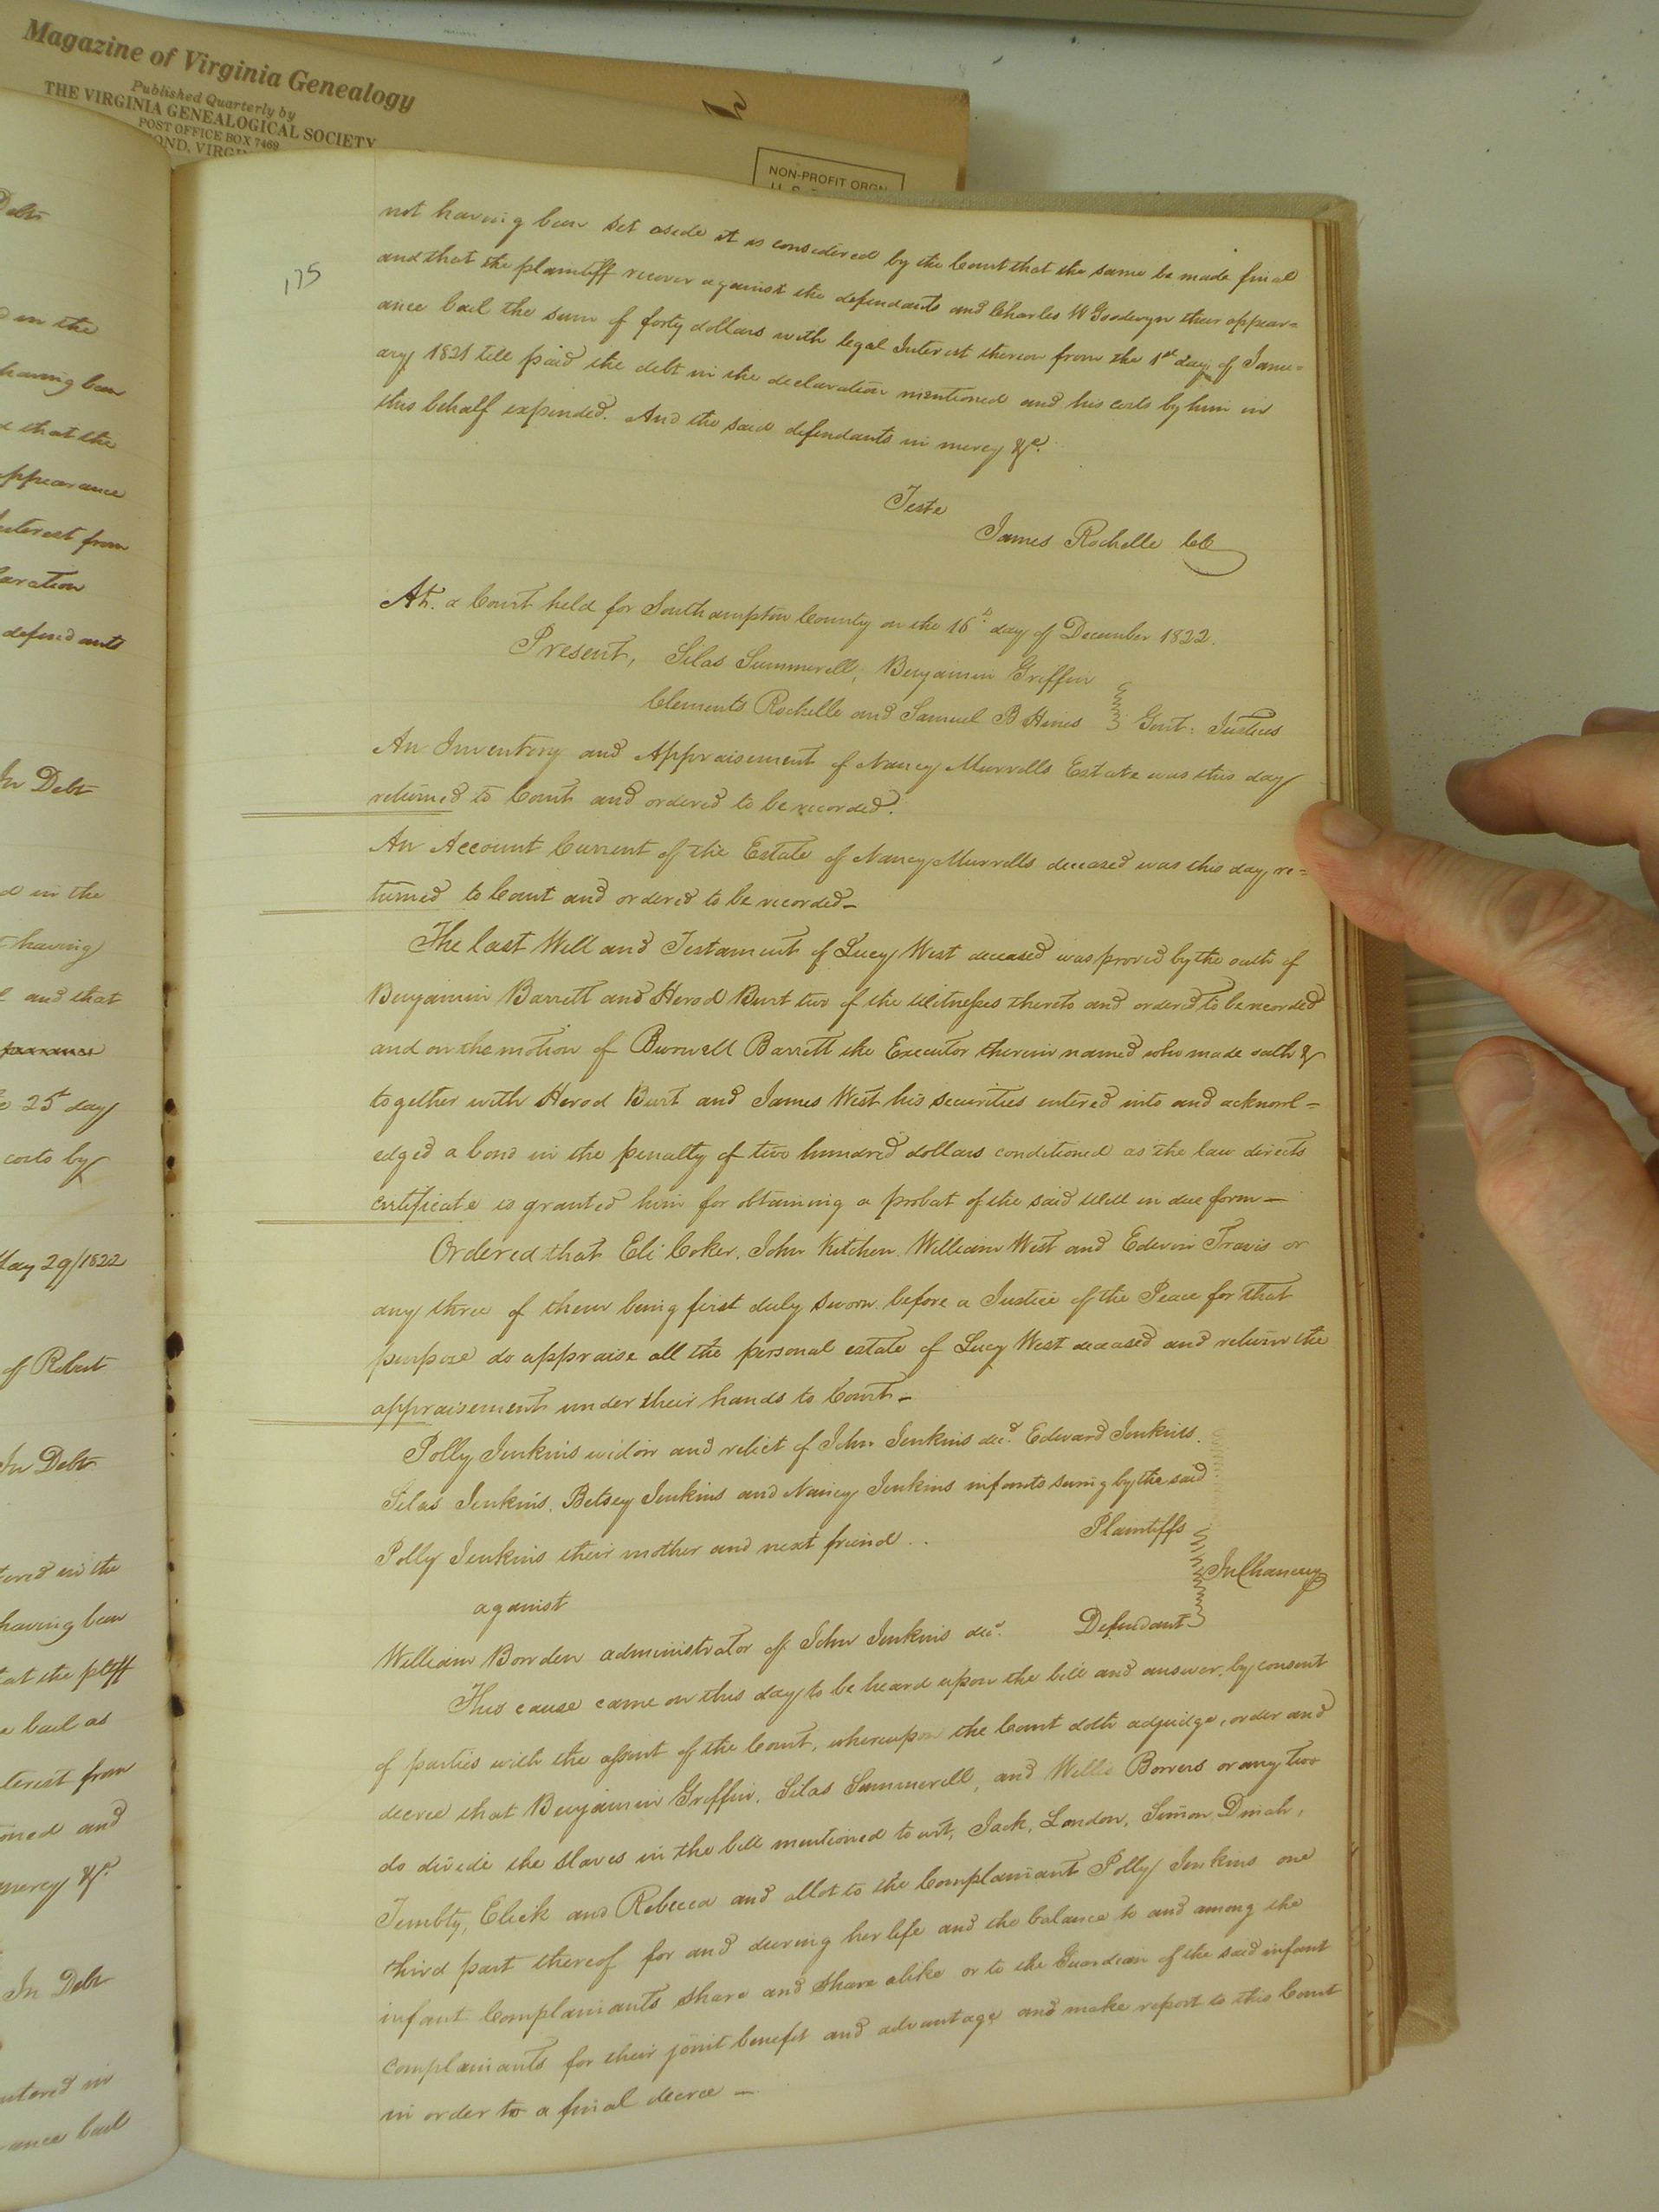 Magazine of Virginia Genealogy
Published Quarterly by
THE VIRGINIA GENEALOGICAL SOCIETY
POST OFFICE BOX 7469
NON-PROFIT ORGN
175
not having been set aside it is considered by the Court that the same be made final
and that the plaintiff recover against the defendants and Charles W Goodwyn their appear=
ance bail the sum of forty dollars with legal Interest thereon from the 1st day of Janu=
ary 1821 till paid the debt in the declaration mentioned and his costs by him in
this behalf expended. And the said defendants in mercy &c.
Teste
James Rochelle CC
At. a Court held for Southampton County on the 16th day of December 1822.
Present, Silas Summerell, Benjamin Griffin
Clements Rochelle and Samuel B Hines Gent: Justices
An Inventory and Appraisement of Nancy Murrells Estate was this day
returned to Court and ordered to be recorded.
An Account Current of the Estate of Nancy Murrells deceased was this day re=
turned to Court and ordered to be recorded—
The last Will and Testament of Lucy West deceased was proved by the oath of
Benjamin Barrett and Herod Burt two of the Witnesses thereto and ordered to be recorded
and on the motion of Burwell Barrett the Executor therein named who made oath &
together with Herod Burt and James West his securities entered into and acknowl=
edged a bond in the penalty of two hundred dollars conditioned as the law directs
certificate is granted him for obtaining a probat of the said Will in due form—
Ordered that Eli Coker, John Kitchen, William West and Edwin Travis or
any three of them being first duly sworn before a Justice of the Peace for that
purpose do appraise all the personal estate of Lucy West deceased and return the
appraisement under their hands to Court—
Polly Jenkins widow and relict of John Jenkins decd. Edward Jenkins.
Silas Jenkins, Betsey Jenkins and Nancy Jenkins infants suing by the said
Polly Jenkins their mother and next friend .. Plaintiffs
In Chancery
against
William Bowden administrator of John Jenkins decd. Defendant
This cause came on this day to be heard upon the bill and answer, by consent
of parties with the assent of the Court, whereupon the Court doth adjudge, order and
decree that Benjamin Griffin, Silas Summerell, and Willie Bowers or any two
do divide the slaves in the bill mentioned to wit, Jack, London, Simon, Dinah,
Elick and Rebecca and allot to the Complainant Polly Jenkins one
third part thereof for and during her life and the balance to and among the
infant Complainants share and share alike or to the Guardian of the said infant
complainants for their joint benefit and advantage and make report to this Court
in order to a final decree —